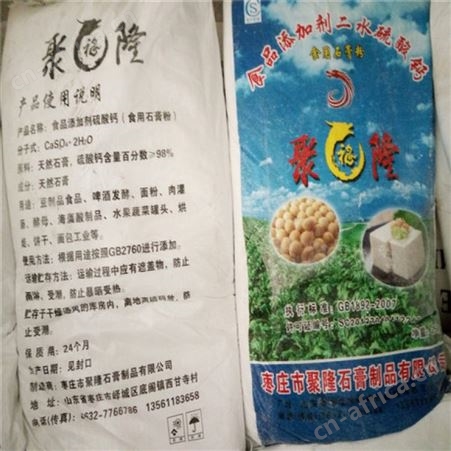 聚福隆
产品使用说明
产品名称：食品添加剂硫酸钙（食用石膏粉）
分子式：CaSO₄·2H₂O
原料：天然石膏，硫酸钙含量百分数≥98%
成分：天然石膏
用途：豆制品食品、啤酒发酵、面粉、肉灌
肠、酵母、海藻酸制品、水果蔬菜罐头、烘
焙、饼干、面包工业等。
使用方法：根据用途按照GB2760进行添加。
运输贮存方法：运输过程中应有遮盖物，防止
雨淋、受潮，防止暴晒受热。
贮存于干燥通风的库房内，离地离墙码放，防
止受潮。
保质期：24个月
生产日期：见封口
制造商：枣庄市聚隆石膏制品有限公司
地址：山东省枣庄市峄城区底阁镇西甘寺村
电话(传真)：0632-7766786 13561183658
食品添加剂二水硫酸钙
食用石膏粉
聚福隆
执行标准：GB1892-2007
许可证编号：
枣庄市聚隆石膏制品有限公司
cn-africa